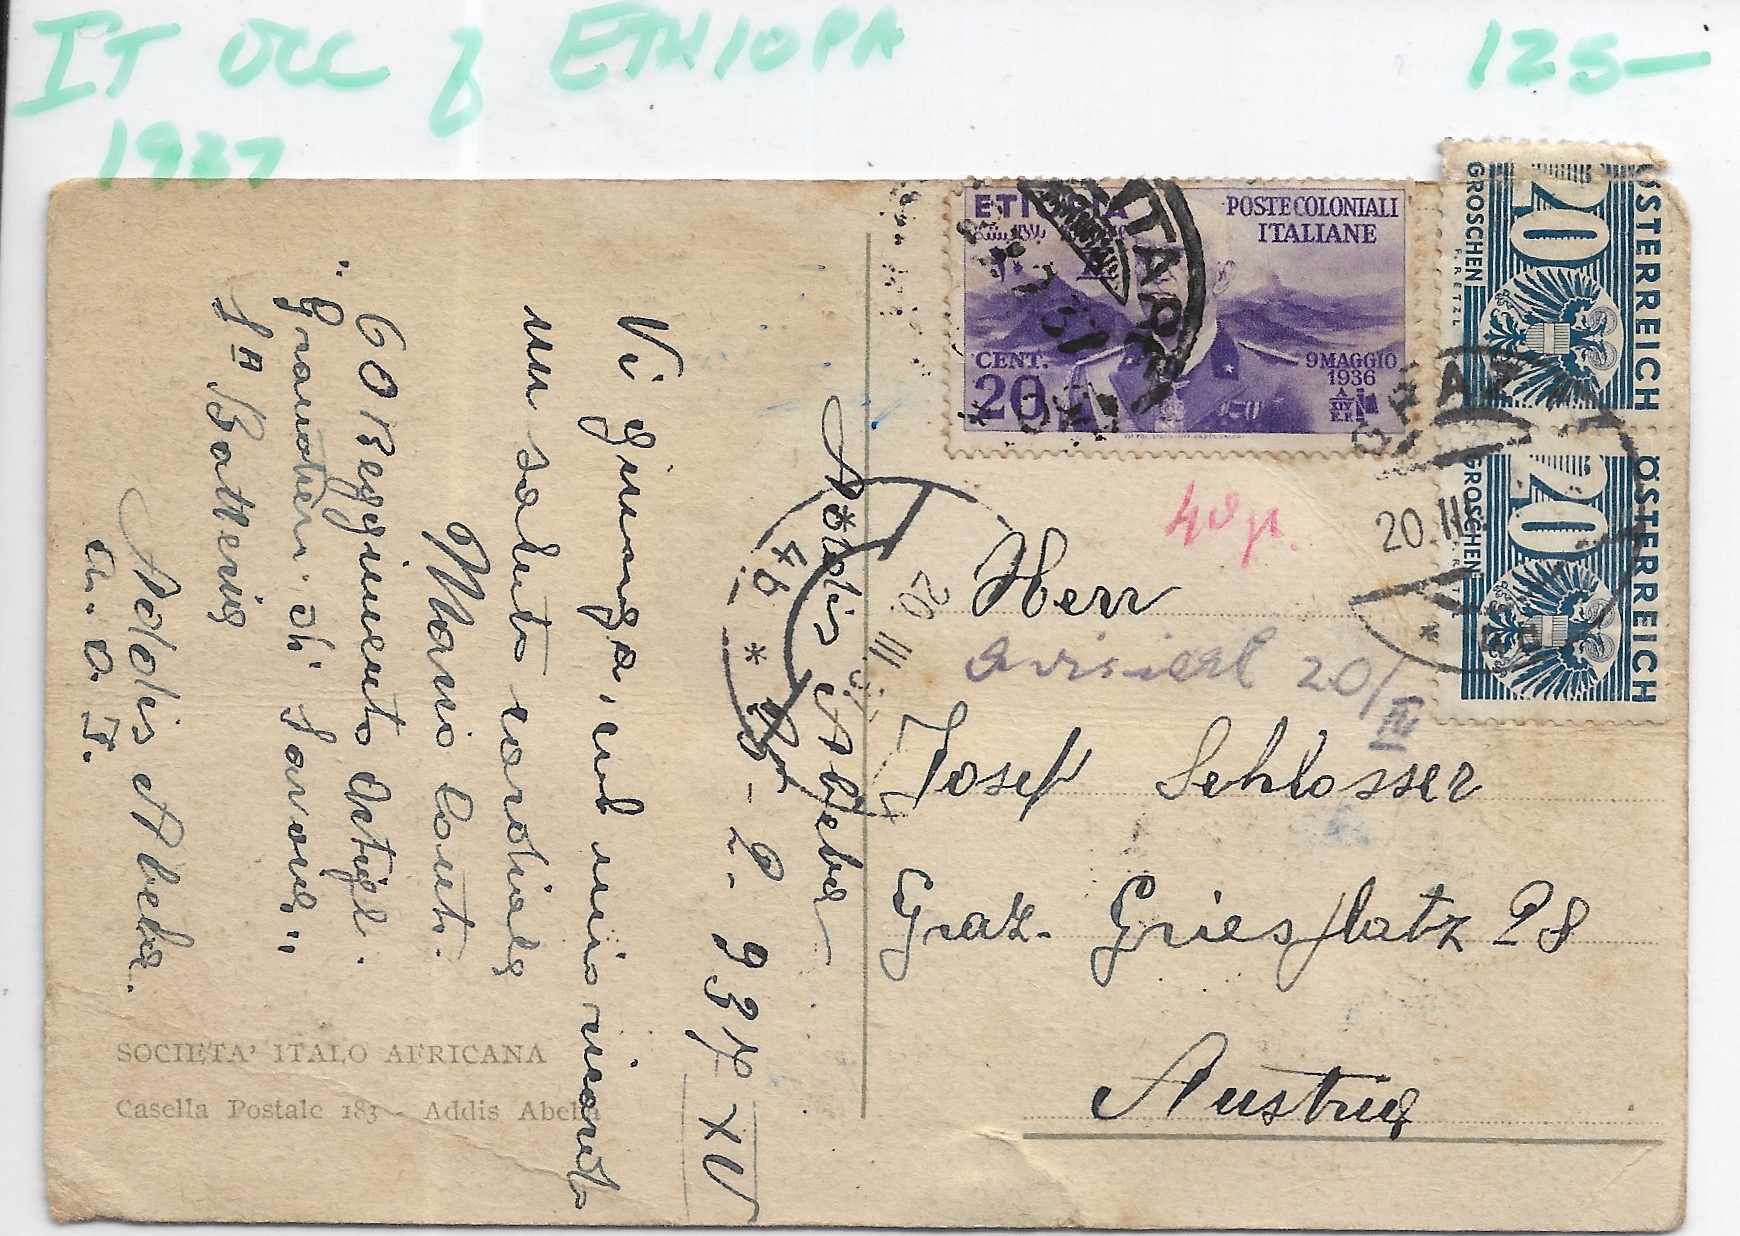 IT OCC of ETHIOPIA
125-
1937
ETIOPIA
POSTE COLONIALI
ITALIANE
CENT.
20
9 MAGGIO
1936
A
XIV
E.F.
ÖSTERREICH
20
GROSCHEN
F.RETZL
ÖSTERREICH
20
GROSCHEN
GRAZ
20.III
20 III
40 gr.
Herr
avisiert 20/III
Josef Schlosser
Graz. Griesplatz 28
Austria
Addis Abeba
2. 937 XV
Vi giunga, col mio ricordo
un saluto cordiale
Mario Conti.
60 Reggimento Artigl.
"Granatieri di Savoia"
1ª Batteria
Addis Abeba.
A. O. I.
SOCIETA' ITALO AFRICANA
Casella Postale 183 - Addis Abeba